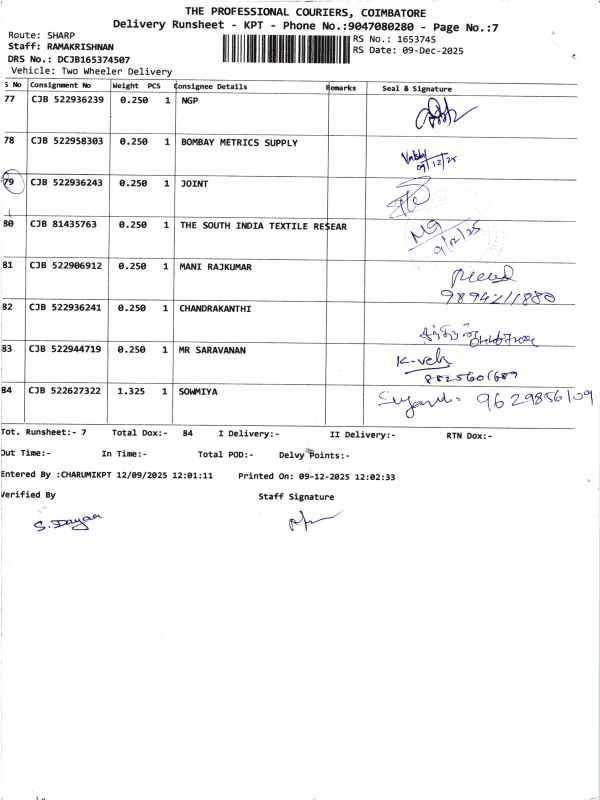 THE PROFESSIONAL COURIERS, COIMBATORE
Delivery Runsheet - KPT - Phone No.:9047080280 - Page No.:7
Route: SHARP
RS No.: 1653745
Staff: RAMAKRISHNAN
RS Date: 09-Dec-2025
DRS No.: DCJB165374507
Vehicle: Two Wheeler Delivery
S No Consignment No Weight PCS Consignee Details Remarks Seal & Signature
77 CJB 522936239 0.250 1 NGP
78 CJB 522958303 0.250 1 BOMBAY METRICS SUPPLY
09/12/25
79 CJB 522936243 0.250 1 JOINT
80 CJB 81435763 0.250 1 THE SOUTH INDIA TEXTILE RESEAR
9/12/25
81 CJB 522906912 0.250 1 MANI RAJKUMAR
82 CJB 522936241 0.250 1 CHANDRAKANTHI
83 CJB 522944719 0.250 1 MR SARAVANAN
84 CJB 522627322 1.325 1 SOWMIYA 9629856109
Tot. Runsheet:- 7 Total Dox:- 84 I Delivery:- II Delivery:- RTN Dox:-
Out Time:- In Time:- Total POD:- Delvy Points:-
Entered By :CHARUMIKPT 12/09/2025 12:01:11 Printed On: 09-12-2025 12:02:33
Verified By Staff Signature
S. Dayaa